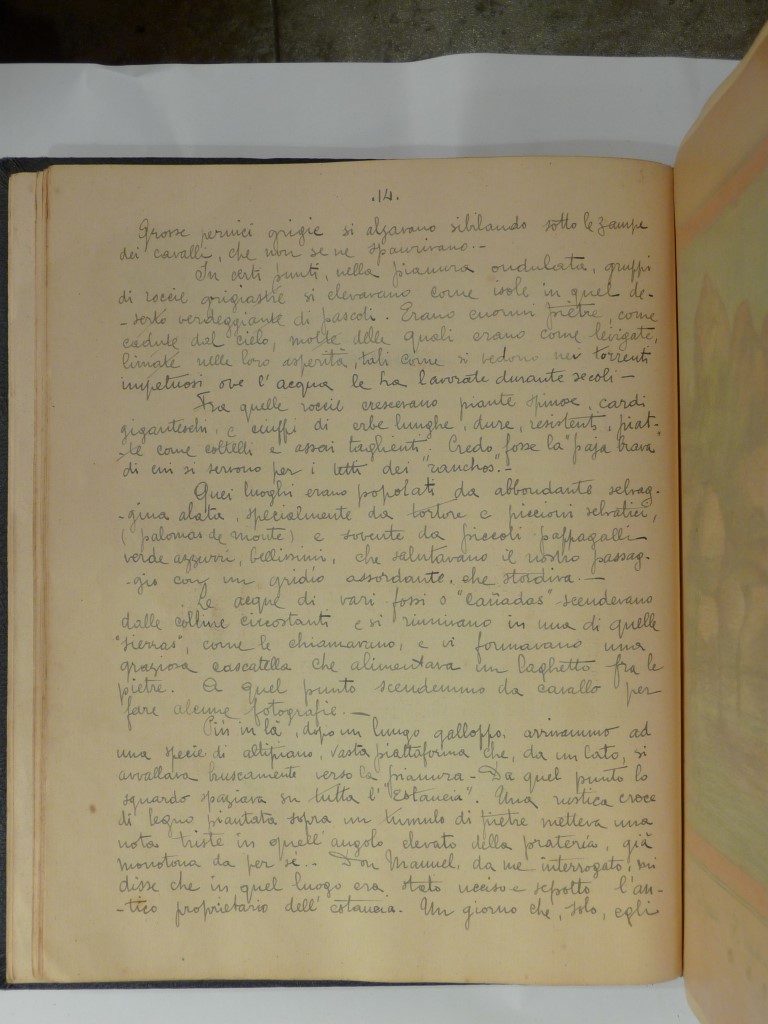 .14.
Grosse pernici grigie si alzavano sibilando sotto le zampe
dei cavalli, che non se ne spaurivano.-
In certi punti, nella pianura ondulata, gruppi
di roccie grigiastre si elevavano come isole in quel de-
-serto verdeggiante di pascoli. Erano enormi pietre, come
cadute dal cielo, molte delle quali erano come levigate,
limate nelle loro asperità, tali come si vedono nei torrenti
impetuosi ove l'acqua le ha lavorate durante secoli -
Fra quelle roccie crescevano piante spinose, cardi
giganteschi, e ciuffi di erbe lunghe, dure, resistenti, piat-
-te come coltelli e assai taglienti. Credo fosse la "paja brava"
di cui si servono per i tetti dei "ranchos".-
Quei luoghi erano popolati da abbondante selvag-
-gina alata, specialmente da tortore e piccioni selvatici,
(palomas de monte) e sovente da piccoli pappagalli
verde azzurri, bellissimi, che salutavano il nostro passag-
-gio con un gridio assordante, che stordiva.-
Le acque di vari fossi o "cañadas" scendevano
dalle colline circostanti e si riunivano in una di quelle
"sierras", come le chiamavano, e vi formavano una
graziosa cascatella che alimentava un laghetto fra le
pietre. A quel punto scendemmo da cavallo per
fare alcune fotografie.-
Più in là, dopo un lungo galoppo, arrivammo ad
una specie di altipiano, vasta piattaforma che, da un lato, si
avvallava bruscamente verso la pianura - Da quel punto lo
sguardo spaziava su tutta l'"Estancia". Una rustica croce
di legno piantata sopra un tumulo di pietre metteva una
nota triste in quell'angolo elevato della prateria, già
monotona da per sé.. Don Manuel, da me interrogato, mi
disse che in quel luogo era stato ucciso e sepolto l'an-
-tico proprietario dell'estancia. Un giorno che, solo, egli